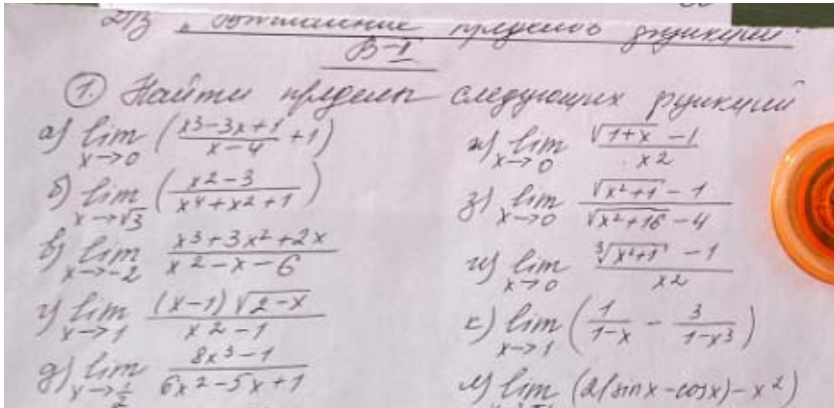 Д/З "Вычисление пределов функций"
В-I
1. Найти пределы следующих функций
а) lim x→0 (x3-3x+1 / x-4 + 1)
б) lim x→√3 (x2-3 / x4+x2+1)
в) lim x→-2 x3+3x2+2x / x2-x-6
г) lim x→1 (x-1)√2-x / x2-1
д) lim x→1/2 8x3-1 / 6x2-5x+1
ж) lim x→0 √1+x -1 / x2
з) lim x→0 √x2+1 - 1 / √x2+16 - 4
и) lim x→0 ∛x2+1 - 1 / x2
к) lim x→1 (1 / 1-x - 3 / 1-x3)
л) lim (2(sinx-cosx)-x2)